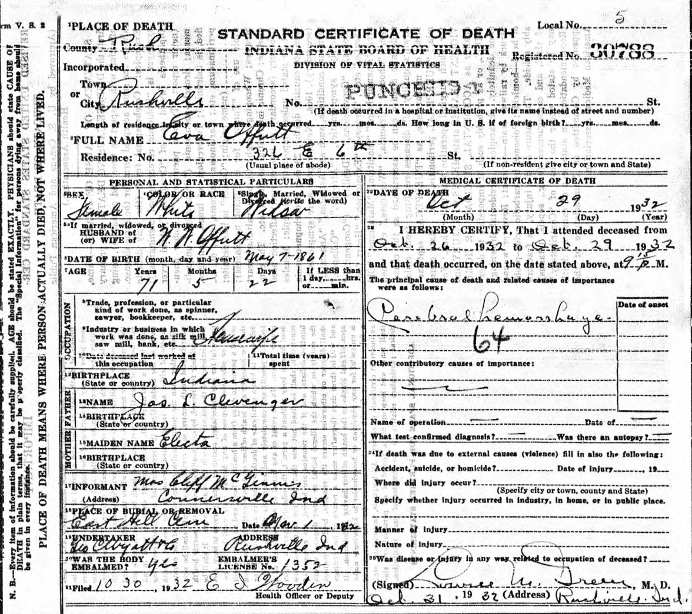 rm V. S. 2
Local No. 5
¹PLACE OF DEATH
STANDARD CERTIFICATE OF DEATH
County Rush
INDIANA STATE BOARD OF HEALTH
Registered No. 30788
Incorporated
DIVISION OF VITAL STATISTICS
Town
or
City Rushville
PUNCHED
No. St.
(If death occurred in a hospital or institution, give its name instead of street and number)
Length of residence in city or town where death occurred yrs. mos. ds. How long in U. S. if of foreign birth? yrs. mos. ds.
²FULL NAME Eva Offutt
Residence: No. 326 E 6th St.
(Usual place of abode) (If non-resident give city or town and State)
PERSONAL AND STATISTICAL PARTICULARS
³SEX ⁴COLOR OR RACE ⁵Single, Married, Widowed or Divorced (write the word)
Female White Widow
If married, widowed, or divorced
HUSBAND of
(or) WIFE of
Offutt
⁶DATE OF BIRTH (month, day and year) May 7-1861
⁷AGE Years Months Days If LESS than
1 day, hrs.
or min.
71 5 22
OCCUPATION
⁸Trade, profession, or particular
kind of work done, as spinner,
sawyer, bookkeeper, etc.
⁹Industry or business in which
work was done, as silk mill,
saw mill, bank, etc.
Housewife
¹⁰Date deceased last worked at
this occupation
¹¹Total time (years)
spent
¹²BIRTHPLACE
(State or country) Indiana
FATHER
¹³NAME Jas. L. Clevenger
¹⁴BIRTHPLACE
(State or country)
MOTHER
¹⁵MAIDEN NAME Electa
¹⁶BIRTHPLACE
(State or country)
¹⁷INFORMANT Mrs Cliff McGinnis
(Address) Connersville Ind
¹⁸PLACE OF BURIAL OR REMOVAL
East Hill Cem Date Nov 1 1932
¹⁹UNDERTAKER ADDRESS
Wyatt Co Rushville Ind
WAS THE BODY
EMBALMED? yes
EMBALMER'S
LICENSE No. 1352
Filed 10 30, 1932 E I Wooden
Health Officer or Deputy
MEDICAL CERTIFICATE OF DEATH
DATE OF DEATH Oct 29 1932
(Month) (Day) (Year)
I HEREBY CERTIFY, That I attended deceased from
Oct. 26 1932 to Oct. 29 1932
and that death occurred, on the date stated above, at 9 15 P. M.
The principal cause of death and related causes of importance
were as follows:
Date of onset
Cerebral hemorrhage
64
Other contributory causes of importance:
Name of operation Date of
What test confirmed diagnosis? Was there an autopsy?
If death was due to external causes (violence) fill in also the following:
Accident, suicide, or homicide? Date of injury 19
Where did injury occur?
(Specify city or town, county and State)
Specify whether injury occurred in industry, in home, or in public place.
Manner of injury
Nature of injury
Was disease or injury in any way related to occupation of deceased?
(Signed) Green, M. D.
Oct. 31, 1932 (Address) Rushville Ind.
N. B.—Every item of information should be carefully supplied. AGE should be stated EXACTLY. PHYSICIANS should state CAUSE OF
DEATH in plain terms, that it may be properly classified. The "Special Information" for persons dying away from home should
be given in every instance.
PLACE OF DEATH MEANS WHERE PERSON ACTUALLY DIED, NOT WHERE LIVED.